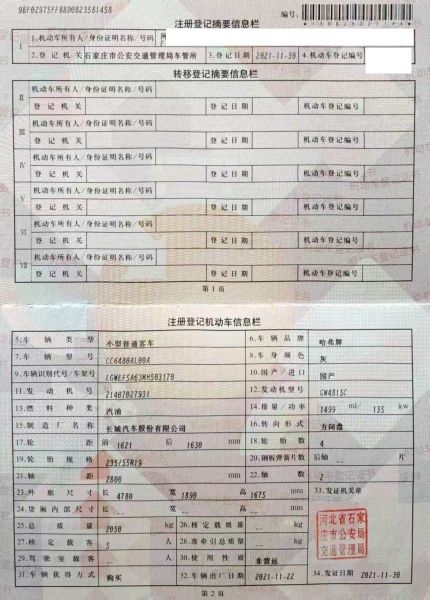 9BF0Z975FF88D0B23581458
编号:
注册登记摘要信息栏
I 1.机动车所有人/身份证明名称/号码
2.登记机关 石家庄市公安交通管理局车管所 3.登记日期 2021-11-30 4.机动车登记编号
转移登记摘要信息栏
II 机动车所有人/身份证明名称/号码
登记机关 登记日期 机动车登记编号
III 机动车所有人/身份证明名称/号码
登记机关 登记日期 机动车登记编号
IV 机动车所有人/身份证明名称/号码
登记机关 登记日期 机动车登记编号
V 机动车所有人/身份证明名称/号码
登记机关 登记日期 机动车登记编号
VI 机动车所有人/身份证明名称/号码
登记机关 登记日期 机动车登记编号
VII 机动车所有人/身份证明名称/号码
登记机关 登记日期 机动车登记编号
第1页
注册登记机动车信息栏
5.车辆类型 小型普通客车 6.车辆品牌 哈弗牌
7.车辆型号 CC6480AL00A 8.车身颜色 灰
9.车辆识别代号/车架号 LGWEF5A63MH503170 10.国产/进口 国产
11.发动机号 21407027931 12.发动机型号 GW4B15C
13.燃料种类 汽油 14.排量/功率 1499 ml/ 135 kw
15.制造厂名称 长城汽车股份有限公司 16.转向形式 方向盘
17.轮距 前 1621 后 1630 mm 18.轮胎数 4
19.轮胎规格 235/55R19 20.钢板弹簧片数 后轴 -- 片
21.轴距 2800 mm 22.轴数 2
23.外廓尺寸 长 4780 宽 1890 高 1675 mm 33.发证机关章
24.货厢内部尺寸 长 -- 宽 -- 高 -- mm
25.总质量 2050 kg 26.核定载质量 -- kg
27.核定载客 5 人 28.准牵引总质量 -- kg
29.驾驶室载客 -- 人 30.使用性质 非营运
31.车辆获得方式 购买 32.车辆出厂日期 2021-11-22 34.发证日期 2021-11-30
河北省石家
庄市公安局
交通管理局
第2页